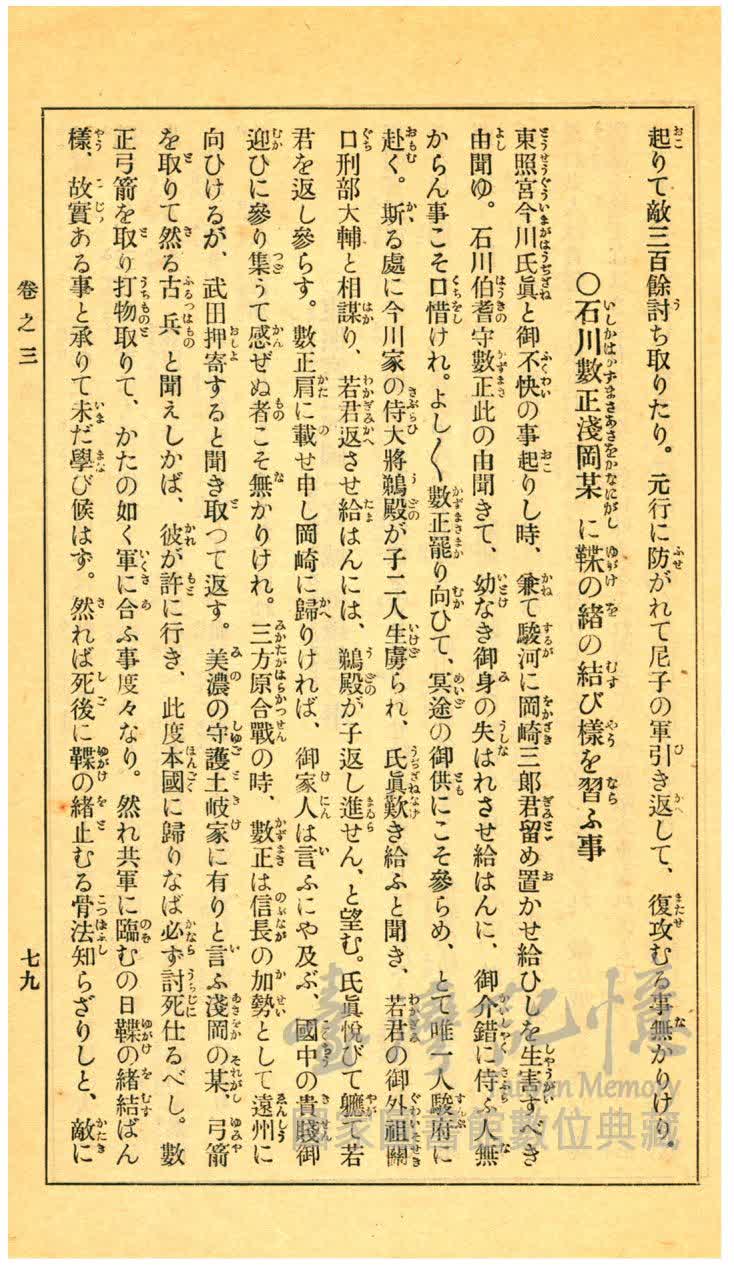 起りて敵三百餘討ち取りたり。元行に防がれて尼子の軍引き返して、復攻むる事無かりけり。
〇石川數正淺岡某に鞢の緒の結び樣を習ふ事
東照宮今川氏眞と御不快の事起りし時、兼て駿河に岡崎三郎君留め置かせ給ひしを生害すべき
由聞ゆ。石川伯耆守數正此の由聞きて、幼なき御身の失はれさせ給はんに、御介錯に侍ふ人無
からん事こそ口惜けれ。よし〳〵數正罷り向ひて、冥途の御供にこそ參らめ、とて唯一人駿府に
赴く。斯る處に今川家の侍大將鵜殿が子二人生虜られ、氏眞歎き給ふと聞き、若君の御外祖關
口刑部大輔と相謀り、若君返させ給はんには、鵜殿が子返し進せん、と望む。氏眞悅びて軈て若
君を返し參らす。數正肩に載せ申し岡崎に歸りければ、御家人は言ふにや及ぶ、國中の貴賤御
迎ひに參り集うて感ぜぬ者こそ無かりけれ。三方原合戰の時、數正は信長の加勢として遠州に
向ひけるが、武田押寄すると聞き取つて返す。美濃の守護土岐家に有りと言ふ淺岡の某、弓箭
を取りて然る古兵と聞えしかば、彼が許に行き、此度本國に歸りなば必ず討死仕るべし。數
正弓箭を取り打物取りて、かたの如く軍に合ふ事度々なり。然れ共軍に臨むの日鞢の緒結ばん
樣、故實ある事と承りて未だ學び候はず。然れば死後に鞢の緒止むる骨法知らざりしと、敵に
卷之三
七九
臺灣記憶
Taiwan Memory
國家圖書館數位典藏